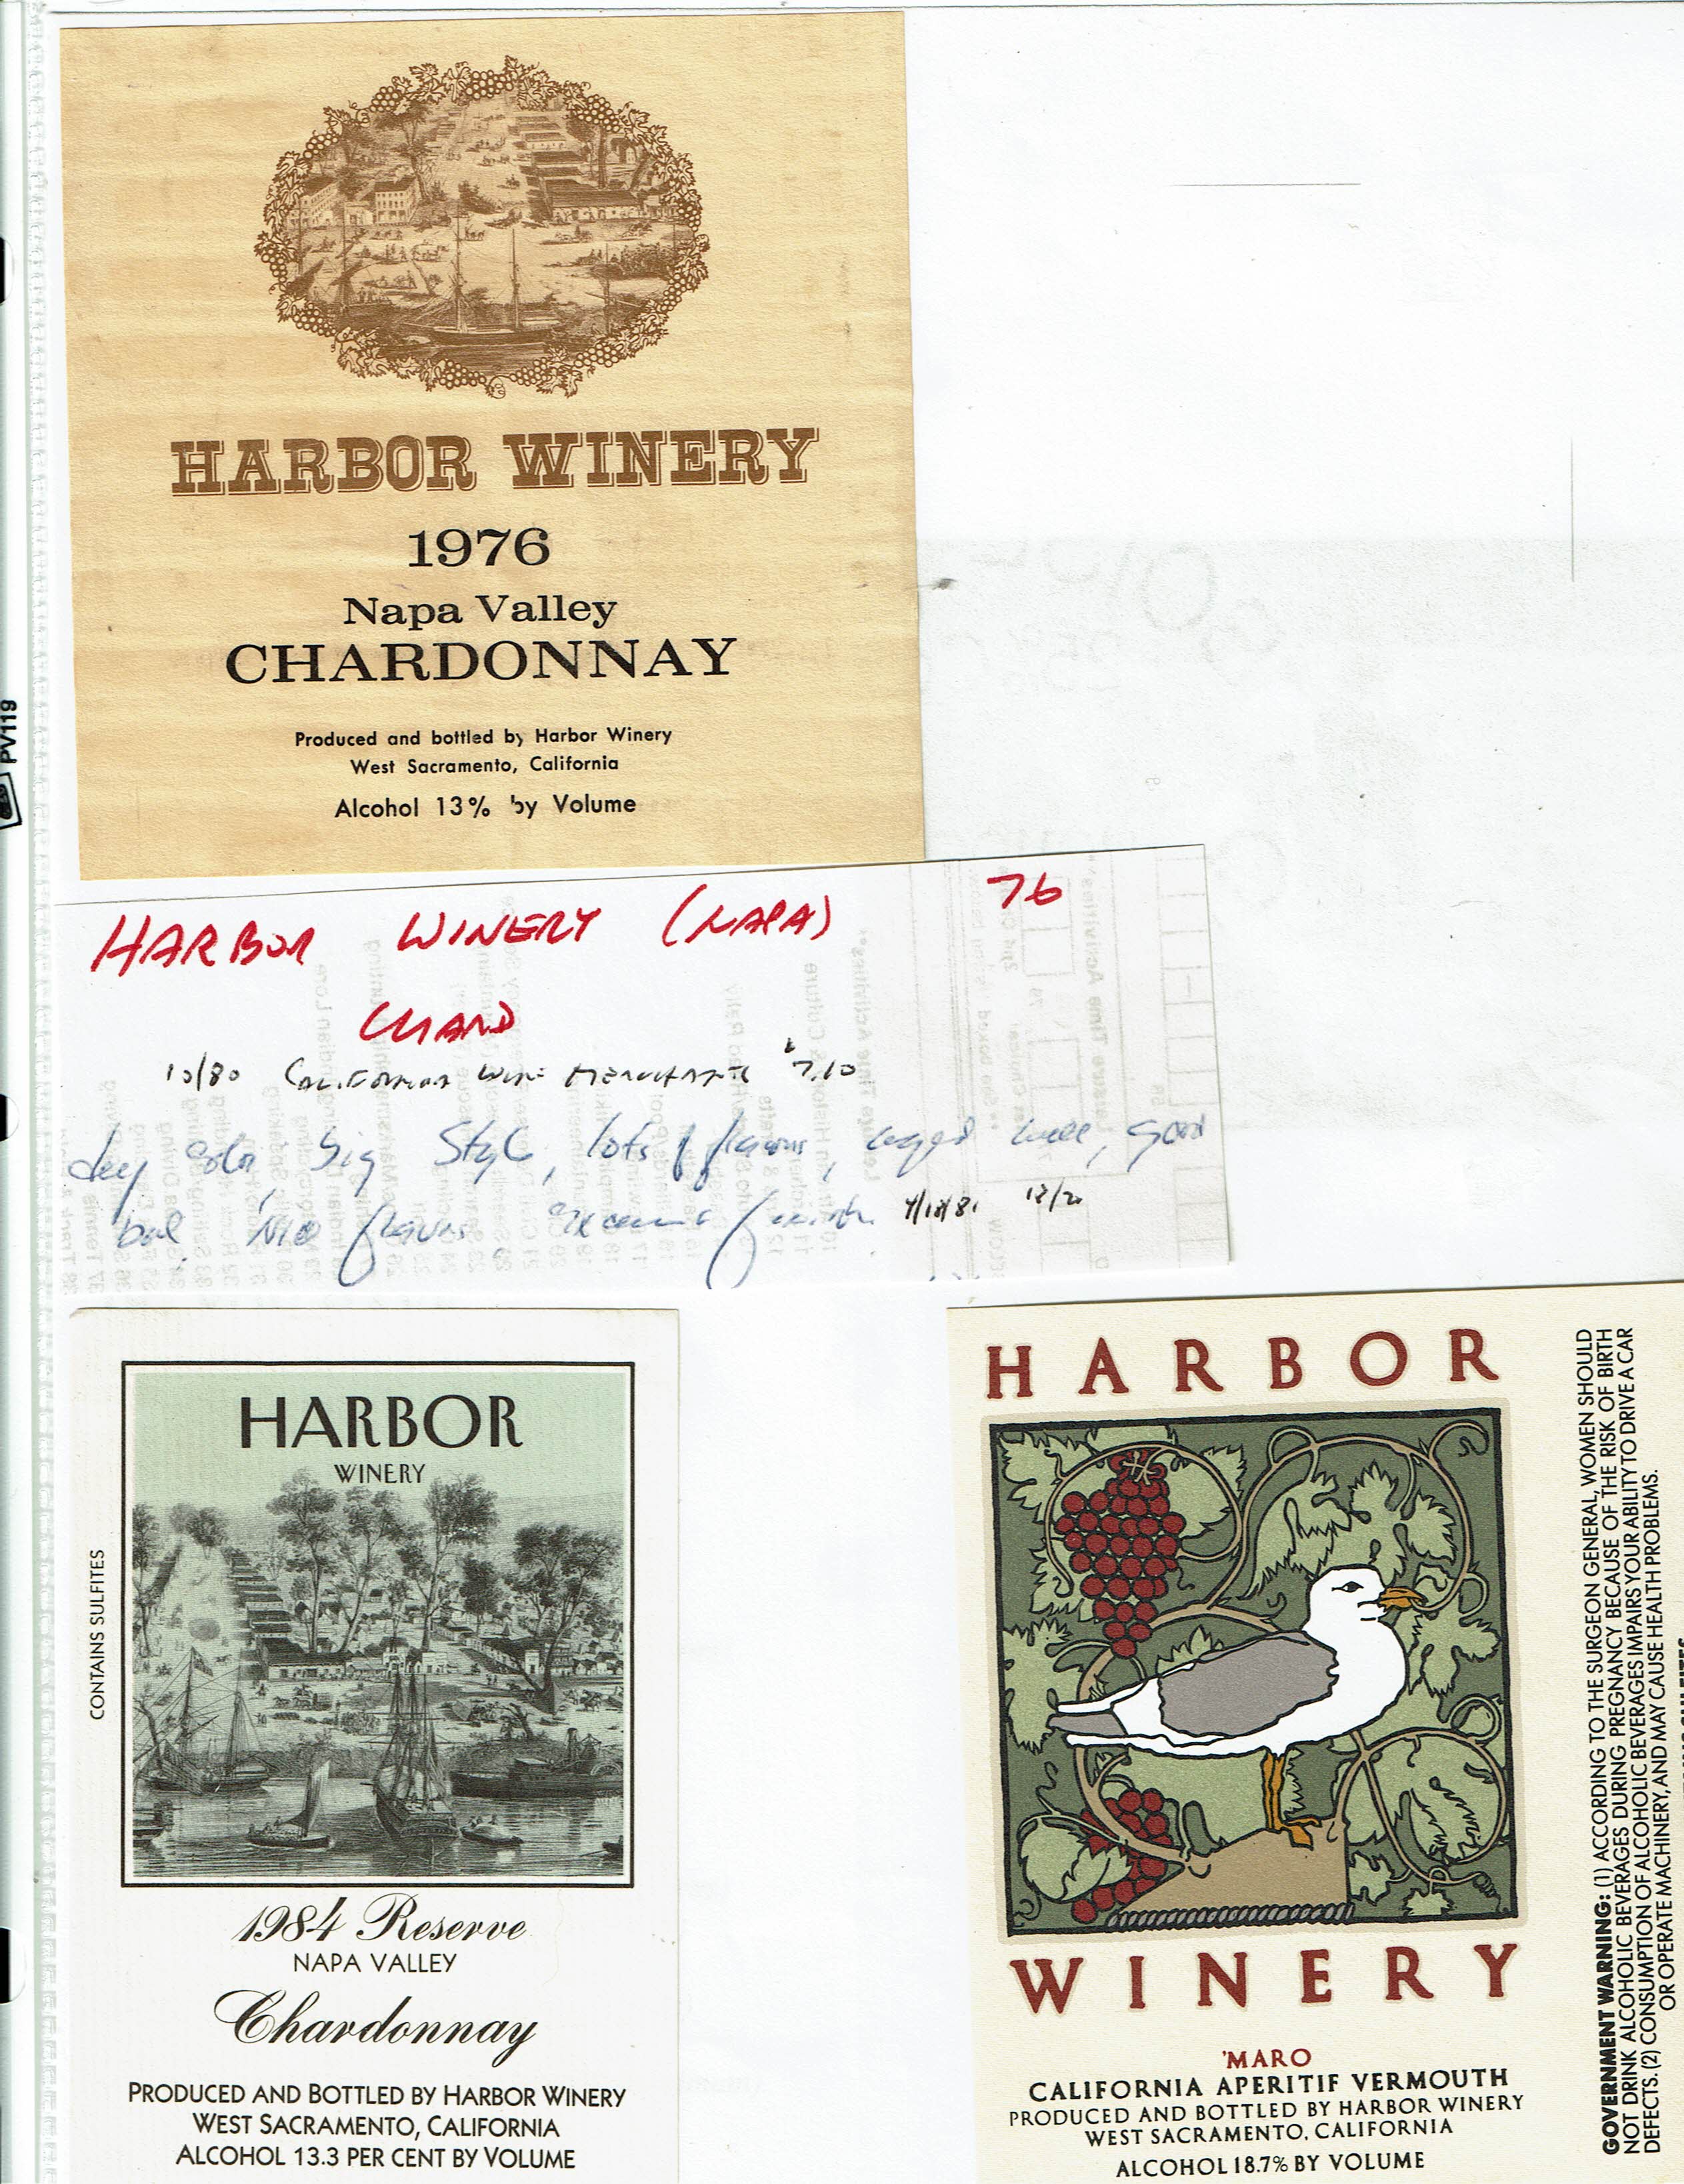 HARBOR WINERY
1976
Napa Valley
CHARDONNAY
Produced and bottled by Harbor Winery
West Sacramento, California
Alcohol 13% by Volume
PV119
HARBOR WINERY (NAPA) 76
CHARD
10/80 CALIFORNIA WINE MERCHANTS $7.10
deep color, big style, lots of flavors, aged well, good
bal. Nice flavors
HARBOR
WINERY
CONTAINS SULFITES
1984 Reserve
NAPA VALLEY
Chardonnay
PRODUCED AND BOTTLED BY HARBOR WINERY
WEST SACRAMENTO, CALIFORNIA
ALCOHOL 13.3 PER CENT BY VOLUME
HARBOR
WINERY
'MARO
CALIFORNIA APERITIF VERMOUTH
PRODUCED AND BOTTLED BY HARBOR WINERY
WEST SACRAMENTO, CALIFORNIA
ALCOHOL 18.7% BY VOLUME
GOVERNMENT WARNING: (1) ACCORDING TO THE SURGEON GENERAL, WOMEN SHOULD
NOT DRINK ALCOHOLIC BEVERAGES DURING PREGNANCY BECAUSE OF THE RISK OF BIRTH
DEFECTS. (2) CONSUMPTION OF ALCOHOLIC BEVERAGES IMPAIRS YOUR ABILITY TO DRIVE A CAR
OR OPERATE MACHINERY, AND MAY CAUSE HEALTH PROBLEMS.